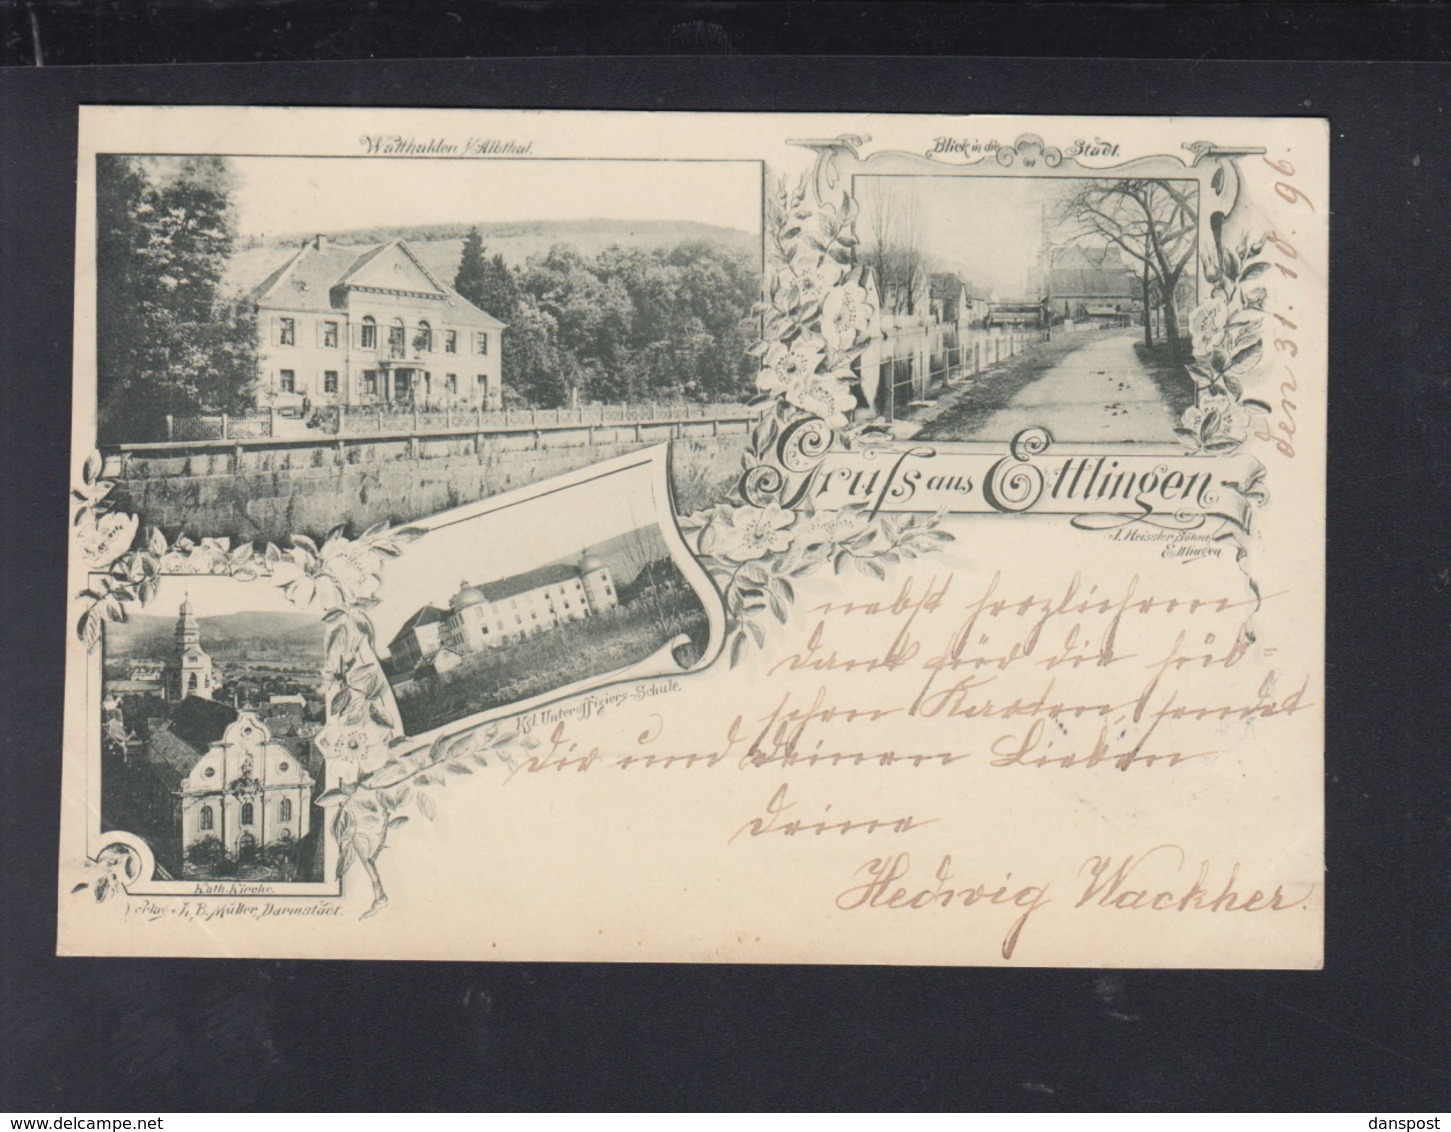 Watthalden i/Albthal.
Blick in die Stadt.
den 31. 10. 96.
Gruss aus Ettlingen
J. Heissler Söhne
Ettlingen
nebst herzlichem
Dank für die hüb-
schen Karten, sendet
Dir und Deinen Lieben
Deine
Hedwig Wackher.
Kgl. Unteroffiziers-Schule.
Kath. Kirche.
Verlag v. L. B. Müller, Darmstadt.
delcampe.net
danspost